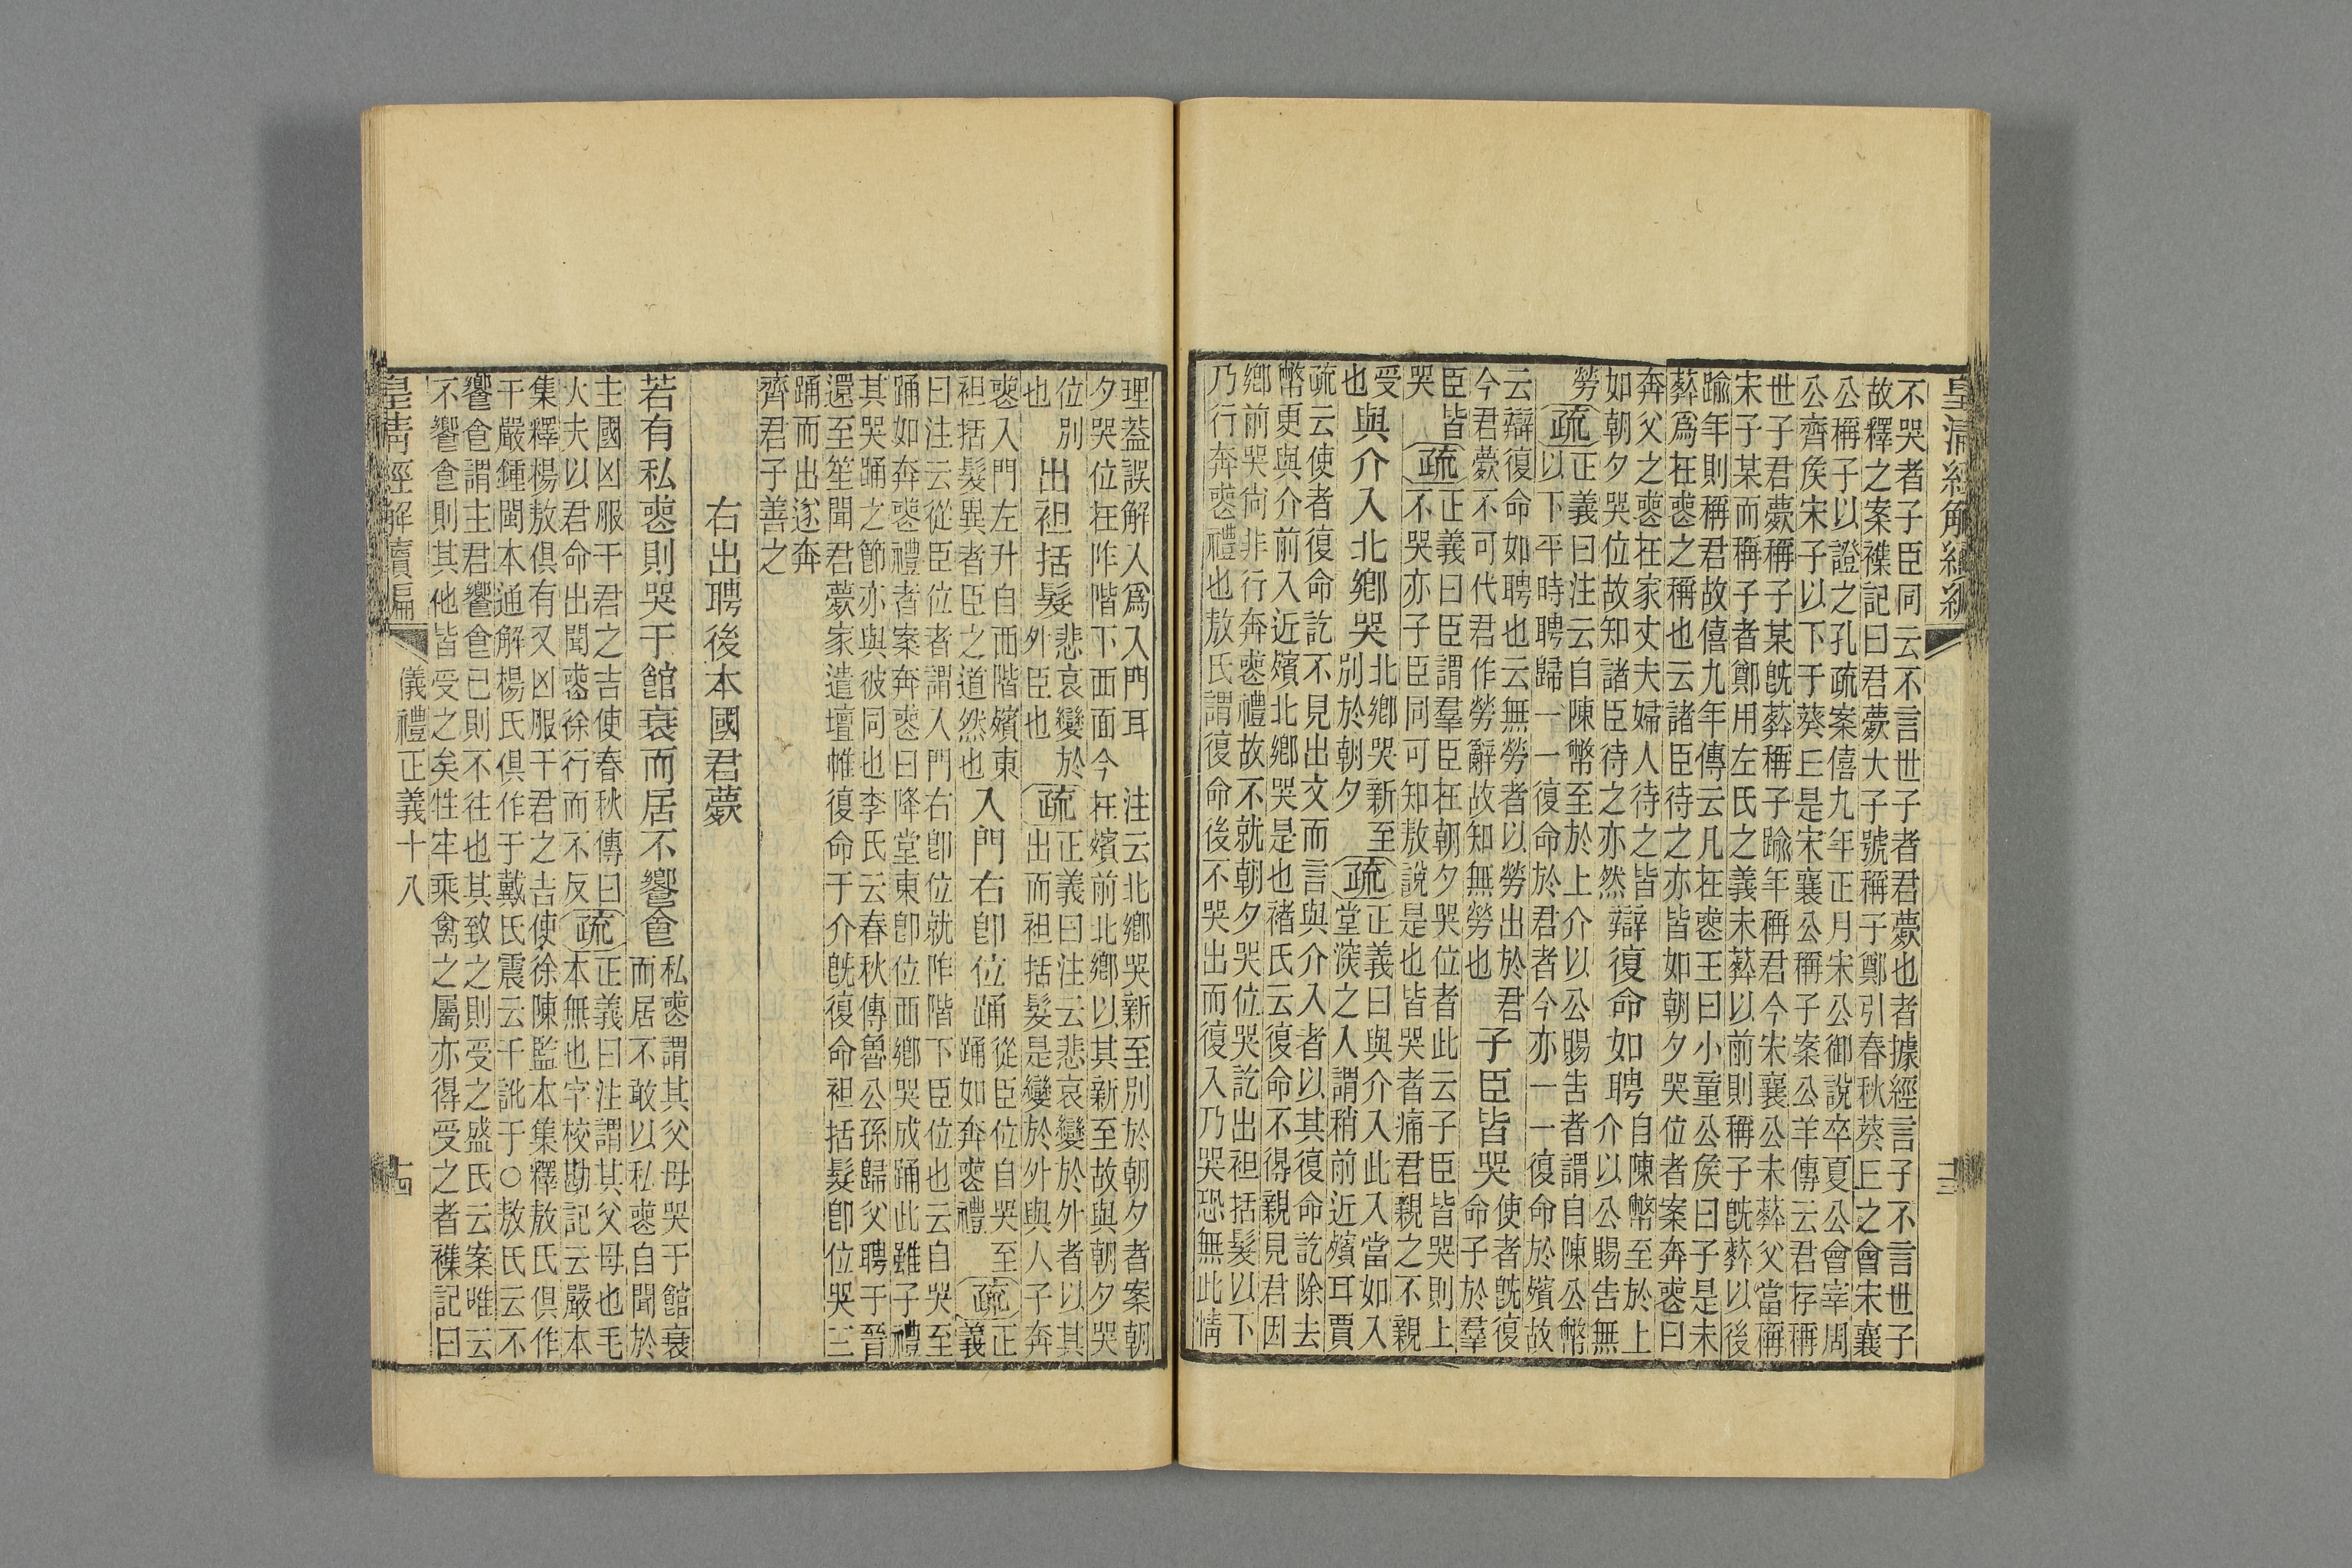 皇清經解續編
不哭者子臣同云不言世子者君薨也者據經言子不言世子
故釋之案襍記曰君薨大子號稱子鄭引春秋葵丘之會宋襄
公稱子以證之孔疏案僖九年正月宋公御說卒夏公會宰周
公齊矦宋子以下于葵丘是宋襄公稱子案公羊傳云君存稱
世子君薨稱子某旣葬稱子踰年稱君今宋襄公未葬父當稱
宋子某而稱子者鄭用左氏之義未葬以前則稱子旣葬以後
踰年則稱君故僖九年傳云凡在喪王曰小童公矦曰子是未
葬爲在喪之稱也云諸臣待之亦皆如朝夕哭位者案奔喪曰
奔父之喪在家丈夫婦人待之皆
如朝夕哭位故知諸臣待之亦然
辯復命如聘
自陳幣至於上
介以公賜告無
勞
疏
正義曰注云自陳幣至於上介以公賜告者謂自陳公幣
以下平時聘歸一一復命於君者今亦一一復命於殯故
云辯復命如聘也云無勞者以勞出於君
今君薨不可代君作勞辭故知無勞也
子臣皆哭
使者旣復
命子於羣
臣皆
哭
疏
正義曰臣謂羣臣在朝夕哭位者此云子臣皆哭則上
不哭亦子臣同可知敖說是也皆哭者痛君親之不親
受
也
與介入北鄉哭
北鄉哭新至
別於朝夕
疏
正義曰與介入此入當如入
堂深之入謂稍前近殯耳賈
疏云使者復命訖不見出文而言與介入者以其復命訖除去
幣更與介前入近殯北鄉哭是也褚氏云復命不得親見君因
鄉前哭尙非行奔喪禮故不就朝夕哭位哭訖出袒括髮以下
乃行奔喪禮也敖氏謂復命後不哭出而復入乃哭恐無此情
十三
理葢誤解入爲入門耳 注云北鄉哭新至別於朝夕者案朝
夕哭位在阼階下西面今在殯前北鄉以其新至故與朝夕哭
位別
也
出袒括髮
悲哀變於
外臣也
疏
正義曰注云悲哀變於外者以其
出而袒括髮是變於外與人子奔
喪入門左升自西階殯東
袒括髮異者臣之道然也
入門右卽位踊
從臣位自哭至
踊如奔喪禮
疏
正
義
曰注云從臣位者謂入門右卽位就阼階下臣位也云自哭至
踊如奔喪禮者案奔喪曰降堂東卽位西鄉哭成踊此雖子禮
其哭踊之節亦與彼同也李氏云春秋傳魯公孫歸父聘于晉
還至笙聞君薨家遣壇帷復命于介旣復命袒括髮卽位哭三
踊而出遂奔
齊君子善之
右出聘後本國君薨
若有私喪則哭于館衰而居不饗食
私喪謂其父母哭于館衰
而居不敢以私喪自聞於
主國凶服干君之吉使春秋傳曰
大夫以君命出聞喪徐行而不反
疏
正義曰注謂其父母也毛
本無也字校勘記云嚴本
集釋楊敖俱有又凶服干君之吉使徐陳監本集釋敖氏俱作
干嚴鍾閩本通解楊氏俱作于戴氏震云干訛于○敖氏云不
饗食謂主君饗食已則不往也其致之則受之盛氏云案唯云
不饗食則其他皆受之矣牲牢乘禽之屬亦得受之者襍記曰
皇清經解續編
儀禮正義十八
十四